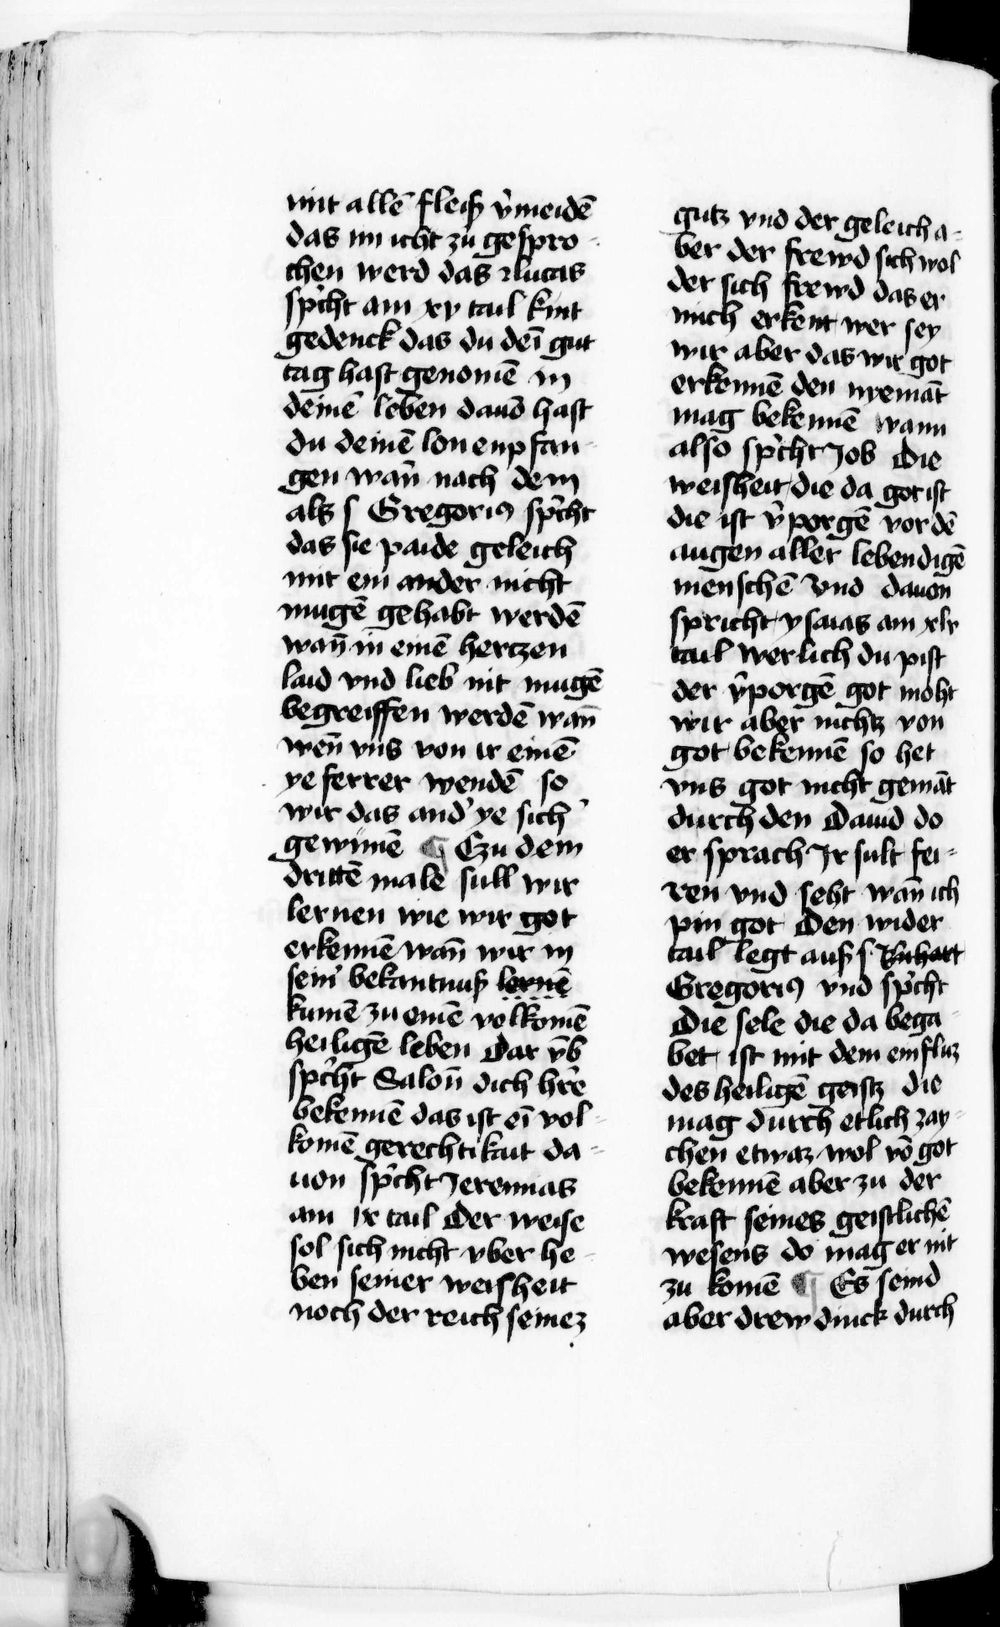 mit allē fleiſz v̄meidē
das im icht zu geſpro-
chen werd das lucas
ſpͥcht am xv tail kint
gedenck das du deī gut
tag haſt genomē in
deinē leben dauō haſt
du deinē lon enpfan-
gen wan̄ nach dem
als ſ Gregoriꝰ ſpͥcht
das ſie paide geleich
mit ein ander nicht
mugē gehabt werdē
wan̄ in einē hertzen
laid vnd lieb nit mugē
begreiffen werdē wan̄
wen̄ vns von ir einē
ye ferrer wendē ſo
wir das and' ye ſich'
gewinnē ¶ Czu dem
drittē male ſull wir
lernen wie wir got
erkennē wan̄ wir in
ſein' bekantnuſz lernē
kumē zu einē volkomē
heiligē leben Dar v̄b
ſpͥcht Salon̄ dich hr̄e
bekennē das iſt eī vol-
komē gerechtikait da-
uon ſpͥcht Jeremias
am ix tail Der weiſe
ſol ſich nicht vber he-
ben ſeiner weiſheit
noch der reich ſeinez
gutz vnd der geleich a-
ber der frewd ſich wol
der ſich frewd das er
mich erkent wer ſey
wir aber das wir got
erkennē den nyemāt
mag bekennē wann
alſo ſpͥcht Job Die
weiſheit die da got iſt
die iſt v̄porgē vor dē
augen aller lebendigē
menſchē Vnd dauon
ſpricht yſaias am xlv
tail werlich du piſt
der v̄porgē got moht
wir aber nichtz von
got bekennē ſo het
vns got nicht gemāt
durch den Dauid do
er ſprach Jr ſult fei-
ren vnd ſeht wan̄ ich
pin got Den wider
tail legt auſz ſ
Gregoriꝰ vnd ſpͥcht
Die ſele die da bega-
bet iſt mit dem einfluz
des heiligē geiſtz die
mag durch etlich zay-
chen etwaz wol vō got
bekennē aber zu der
kraft ſeines geiſtlichē
weſens do mag er nit
zu komē ¶ Es ſeind
aber drew dinck durch